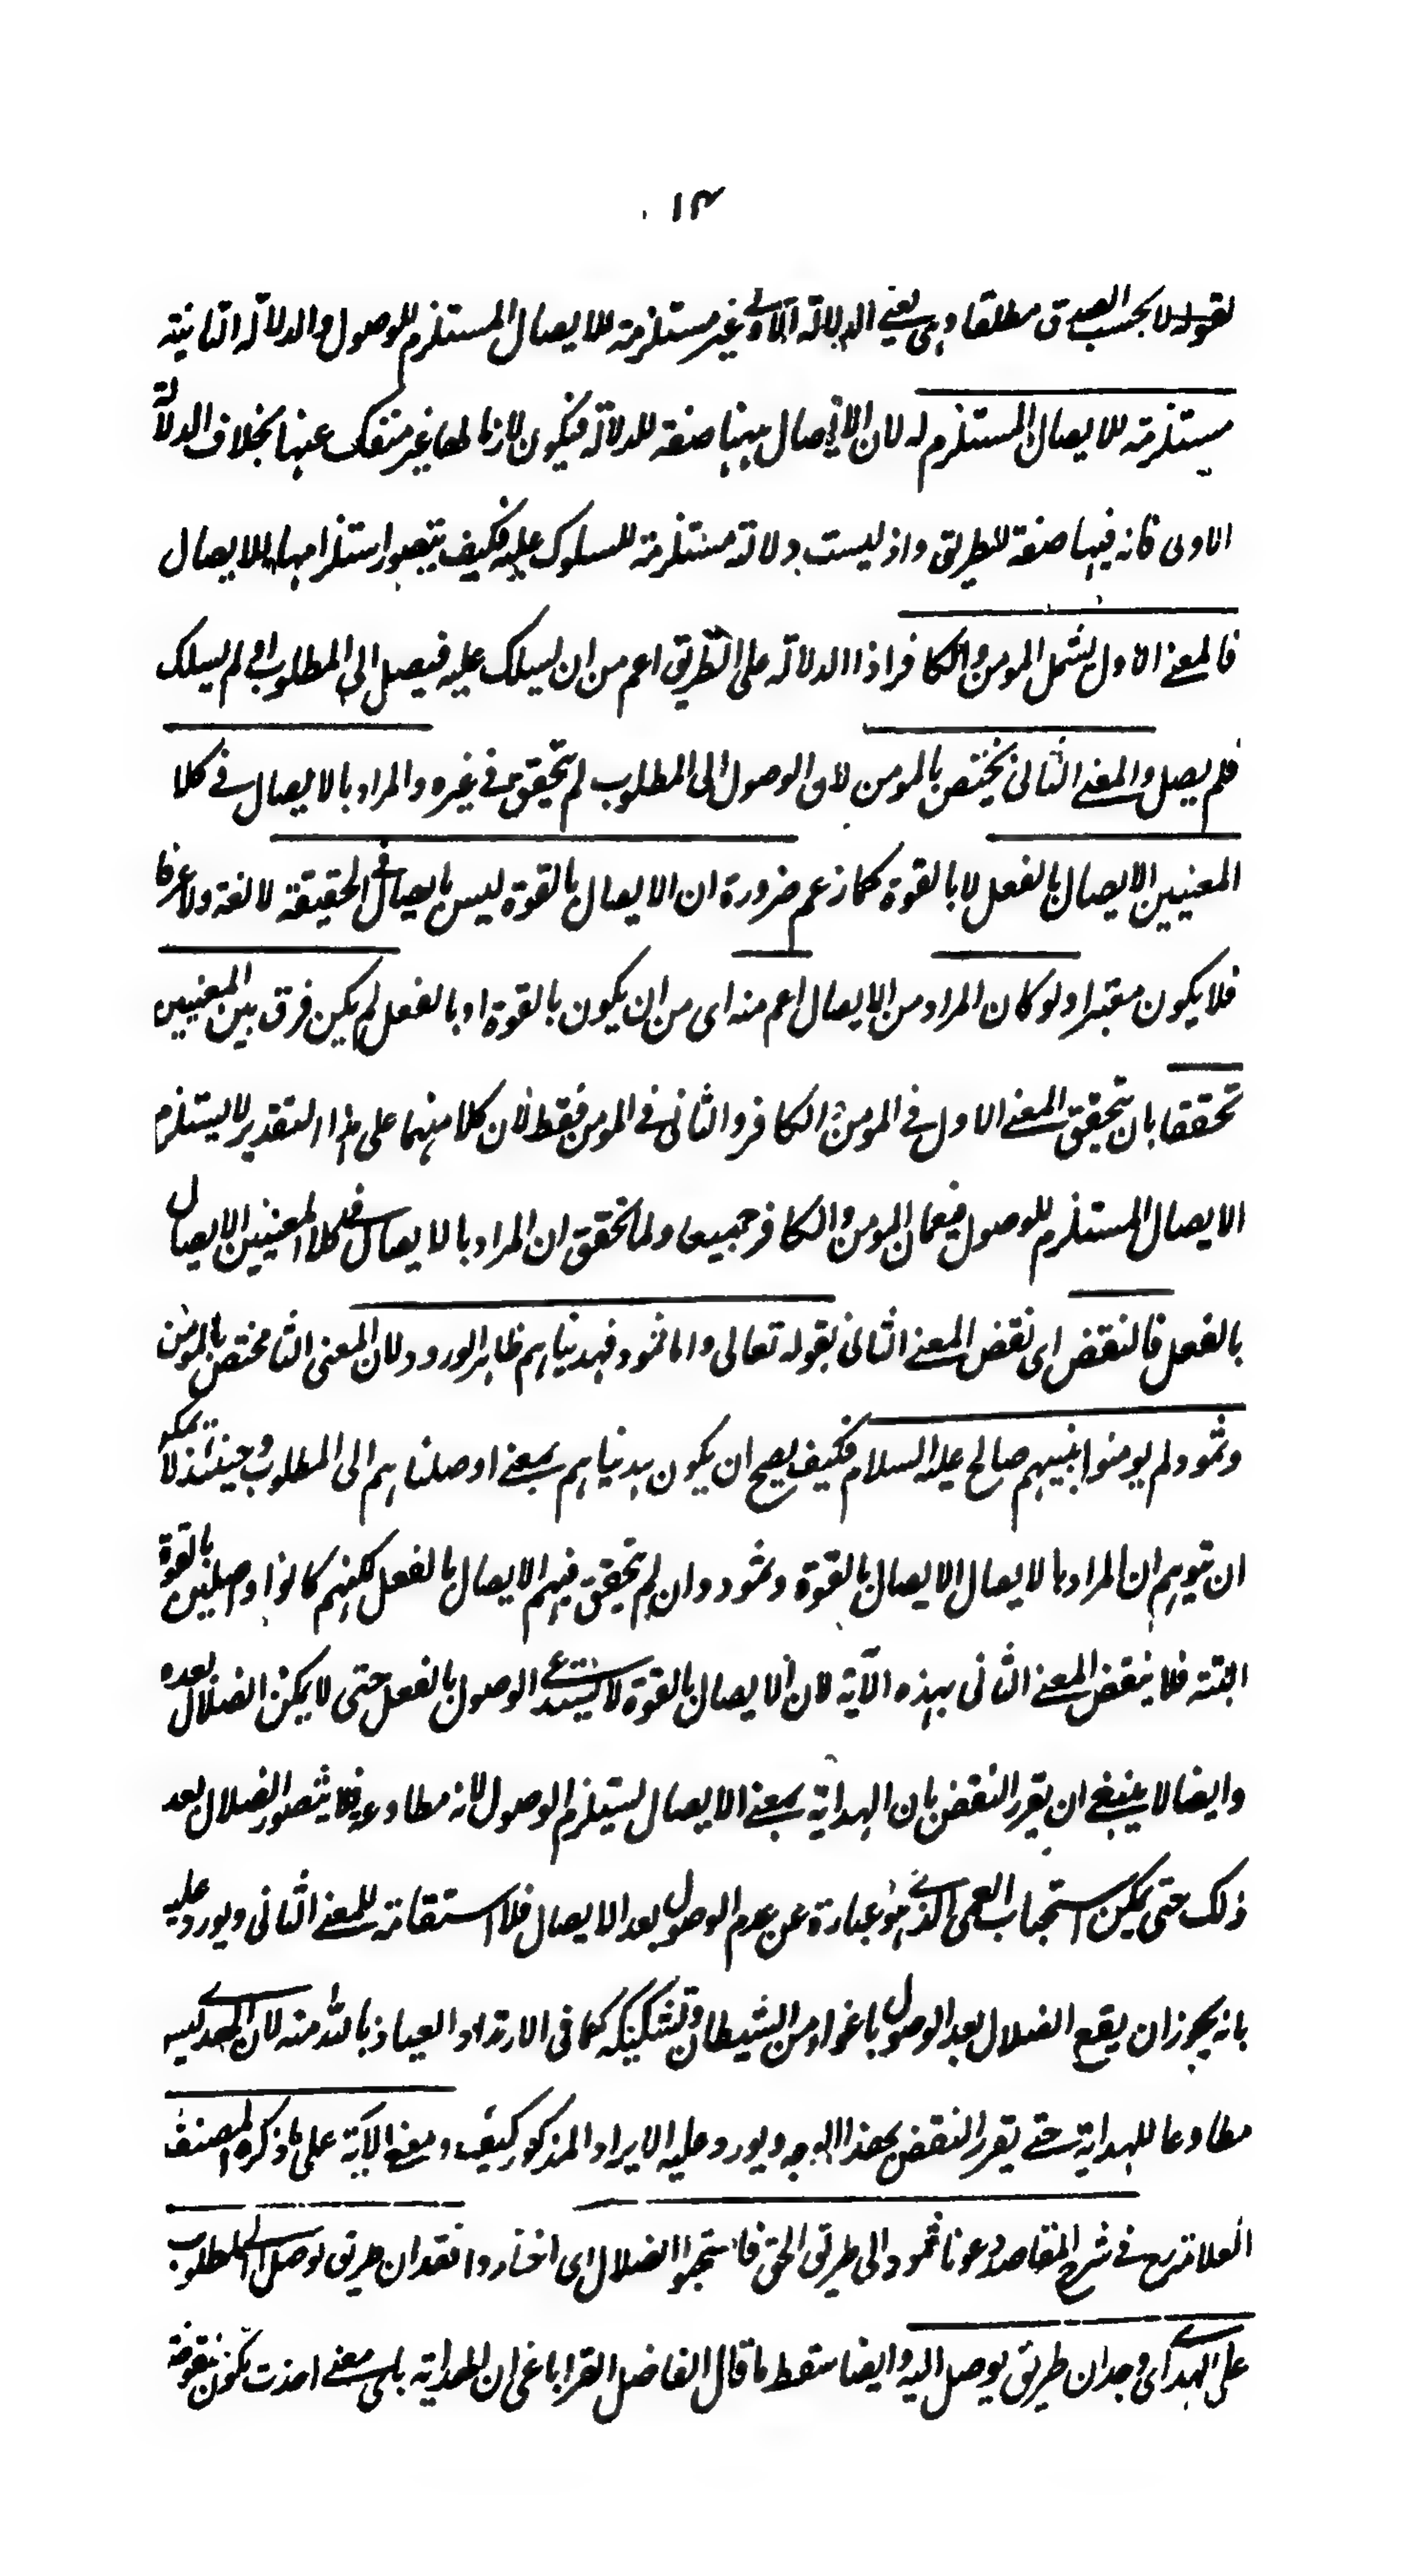 ١٤
بقوله لا بحسب الصدق مطلقا وهى يعنے الدلالة الاولے غير مستلزمة للايصال المستلزم للوصول والدلالة الثانية
مستلزمة للايصال المستلزم له لان الايصال ههنا صفة للدلالة فيكون لازما لها غير منفك عنها بخلاف الدلالة
الاولى فانه فيها صفة للطريق واذ ليست دلالته مستلزمة للسلوك عليه فكيف يتصور استلزامها للايصال
فالمعنے الاول يشمل المومن والكافر اذ الدلالة على الطريق اعم من ان يسلك عليه فيصل الى المطلوب او لم يسلك
فلم يصل والمعنے الثانى يختص بالمومن لان الوصول الى المطلوب لم يتحقق فے غيره والمراد بالايصال فے كلا
المعنيين الايصال بالفعل لا بالقوة كما زعم ضرورة ان الايصال بالقوة ليس بايصال فے الحقيقة لا لغة ولا عرفا
فلا يكون معتبرا ولو كان المراد من الايصال اعم منه اى من ان يكون بالقوة او بالفعل لم يكن فرق بين المعنيين
تحققا بان يتحقق المعنے الاول فے المومن والكافر والثانى فے المومن فقط لان كلا منهما على هذا التقدير لا يستلزم
الايصال المستلزم للوصول فيعمان المومن والكافر جميعا ولما تحقق ان المراد بالايصال فے كلا المعنيين الايصال
بالفعل فالنقض اى نقض المعنے الثانى بقوله تعالى واما ثمود فهديناهم ظاهر الورود لان المعنى الثا مختص بالمومن
وثمود لم يومنوا بنبيهم صالح عليه السلام فكيف يصح ان يكون هديناهم بمعنے اوصلناهم الى المطلوب وحينئذ لا يمكن
ان يتوهم ان المراد بالايصال الايصال بالقوة وثمود وان لم يتحقق فيهم الايصال بالفعل لكنهم كانوا واصلين بالقوة
البتة فلا ينقض المعنے الثانى بهذه الآية لان الايصال بالقوة لا يستدعے الوصول بالفعل حتى لا يمكن الضلال بعده
وايضا لا ينبغے ان يقرر النقض بان الهداية بمعنے الايصال يستلزم الوصول لانه مطاوعه فلا يتصور الضلال بعد
ذلك حتى يمكن استحباب العمى الذے هو عبارة عن عدم الوصول بعد الايصال فلا استقامة للمعنے الثانى ويورد عليه
بانه يجوز ان يقع الضلال بعد الوصول باغواء من الشيطان وتشكيكه كما فى الارتداد العياذ بالله منه لان الهدے ليس
مطاوعا للهداية حتے يقرر النقض بهذا الوجه ويورد عليه الايراد المذكور كيف ومعنے الآية على ما ذكره المصنف
العلامة رح فے شرح المقاصد دعونا ثمود الى طريق الحق فاستحبوا الضلال اى اختاروا فقدان طريق يوصل الى المطلوب
على الهدے اى وجدان طريق يوصل اليه وايضا سقط ما قال الفاضل القراباغى ان الهداية باى معنے اخذت تكون منقوضة